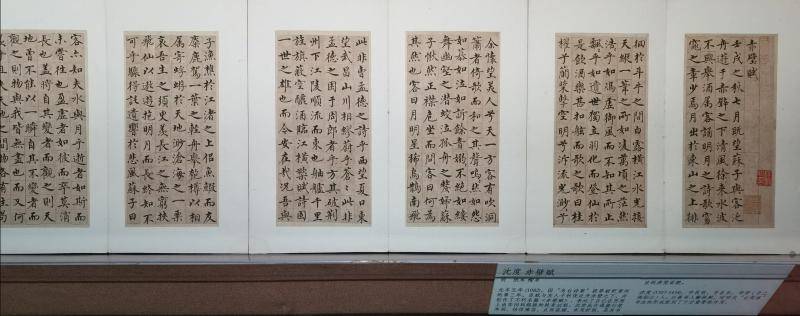 赤壁賦
壬戌之秋七月既望蘇子與客泛
舟遊于赤壁之下清風徐來水波
不興舉酒属客誦明月之詩歌窈
窕之章少焉月出於東山之上徘
徊於斗牛之間白露横江水光接
天縱一葦之所如凌萬頃之茫然
浩乎如馮虚御風而不知其所止
飄乎如遺世獨立羽化而登仙於
是飲酒樂甚扣舷而歌之歌曰桂
棹兮蘭槳擊空明兮泝流光渺兮
余懷望美人兮天一方客有吹洞
簫者倚歌而和之其聲嗚然如怨
如慕如泣如訴餘音嫋不絶如縷
舞幽壑之潛蛟泣孤舟之嫠婦蘇
子愀然正襟危坐而問客曰何為
其然也客曰月明星稀烏鵲南飛
此非曹孟德之詩乎西望夏口東
望武昌山川相繆鬱乎蒼々此非
孟德之困于周郎者乎方其破荆
州下江陵順流而東也舳艫千里
旌旗蔽空釃酒臨江横槊賦詩固
一世之雄也而今安在哉况吾與
子漁樵於江渚之上侣魚鰕而友
麋鹿駕一葉之輕舟舉匏樽以相
属寄蜉蝣於天地渺滄海之一粟
哀吾生之須臾羡長江之無窮挾
飛仙以遨遊抱明月而長終知不
可乎驟得託遺響於悲風蘇子曰
客亦知夫水與月乎逝者如斯而
未嘗往也盈虚者如彼而卒莫消
長也盖將自其變者而觀之則天
地曾不能以一瞬自其不變者而
觀之則物與我皆無盡也而又何
沈度 赤壁賦